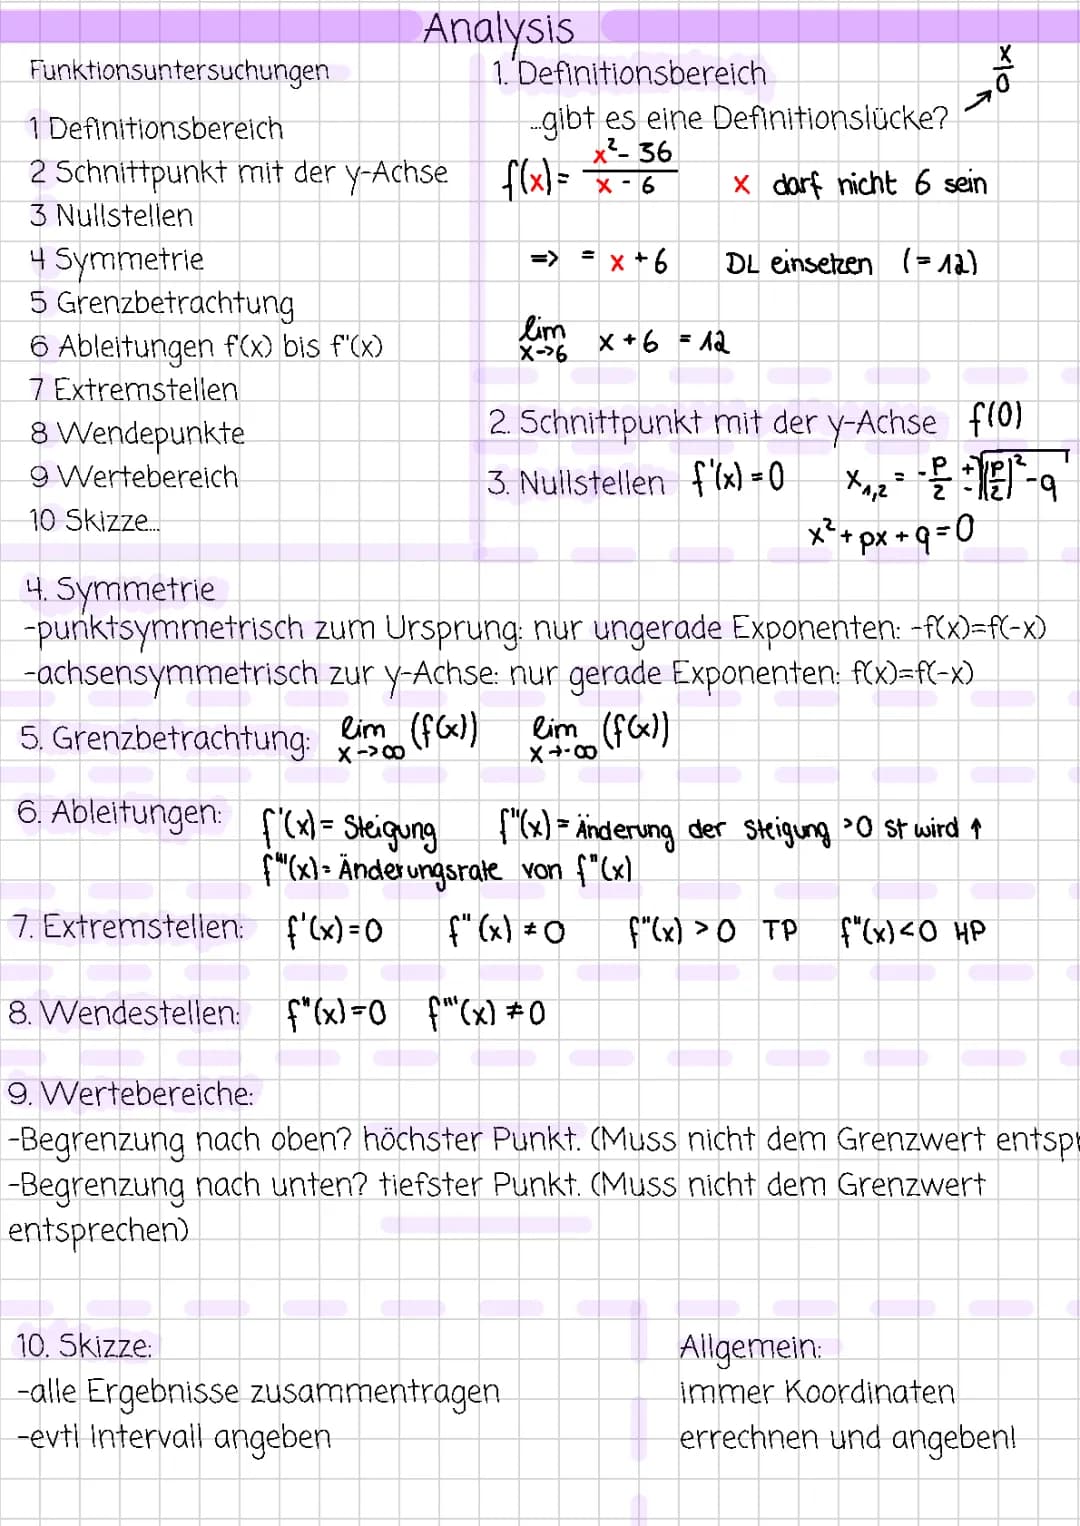 Analysis
Funktionsuntersuchungen
1 Definitionsbereich
2 Schnittpunkt mit der y-Achse
3 Nullstellen
4 Symmetrie
5 Grenzbetrachtung
6 Ableitungen f'(x) bis f''(x)
7 Extremstellen
8 Wendepunkte
9 Wertebereich
10 Skizze...
1. Definitionsbereich
...gibt es eine Definitionslücke? x/0
f(x) = (x² - 36)/(x - 6) x darf nicht 6 sein
=> = x + 6 DL einsetzen (= 12)
lim x->6 x + 6 = 12
2. Schnittpunkt mit der y-Achse f(0)
3. Nullstellen f'(x) = 0 x₁,₂ = -p/2 ± √((p/2)² - q)
x² + px + q = 0
4. Symmetrie
-punktsymmetrisch zum Ursprung: nur ungerade Exponenten: -f(x)=f(-x)
-achsensymmetrisch zur y-Achse: nur gerade Exponenten: f(x)=f(-x)
5. Grenzbetrachtung: lim x->∞ (f(x)) lim x->-∞ (f(x))
6. Ableitungen: f'(x) = Steigung f''(x) = Änderung der Steigung >0 st wird ↑
f'''(x) = Änderungsrate von f''(x)
7. Extremstellen: f'(x) = 0 f''(x) ≠ 0 f''(x) > 0 TP f''(x) < 0 HP
8. Wendestellen: f''(x) = 0 f'''(x) ≠ 0
9. Wertebereiche:
-Begrenzung nach oben? höchster Punkt. (Muss nicht dem Grenzwert entspr
-Begrenzung nach unten? tiefster Punkt. (Muss nicht dem Grenzwert
entsprechen)
10. Skizze:
-alle Ergebnisse zusammentragen
-evtl Intervall angeben
Allgemein:
immer Koordinaten
errechnen und angeben!